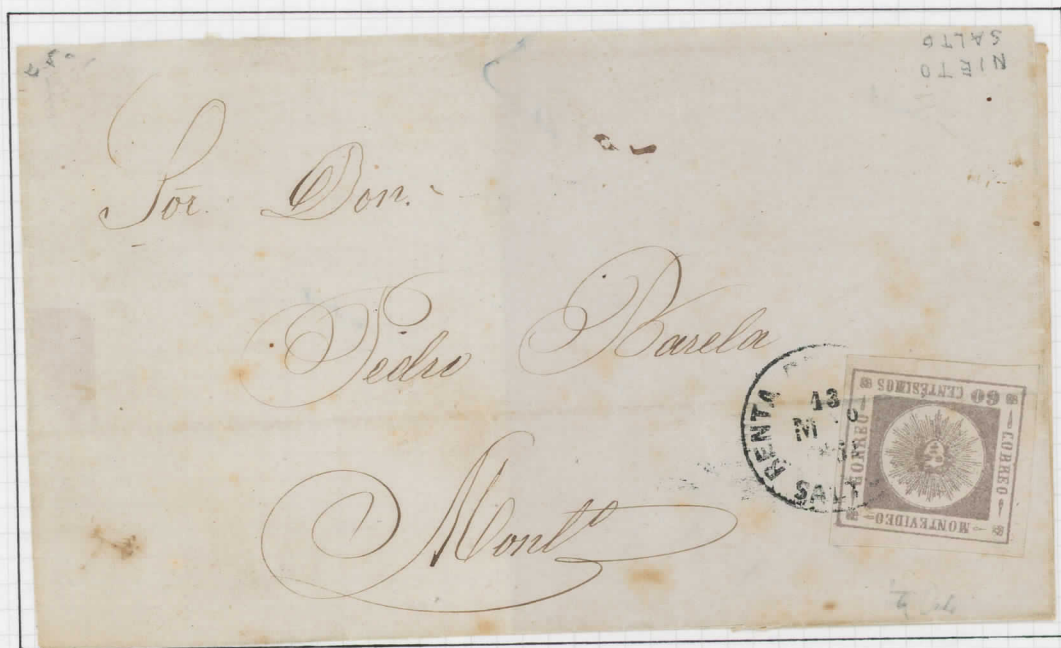 NIETO
SALTO
Sor. Don.
Pedro Barela
Mont^o
RENTA
13
M
SALT
60 CENTÉSIMOS
CORREO
CORREO
MONTEVIDEO